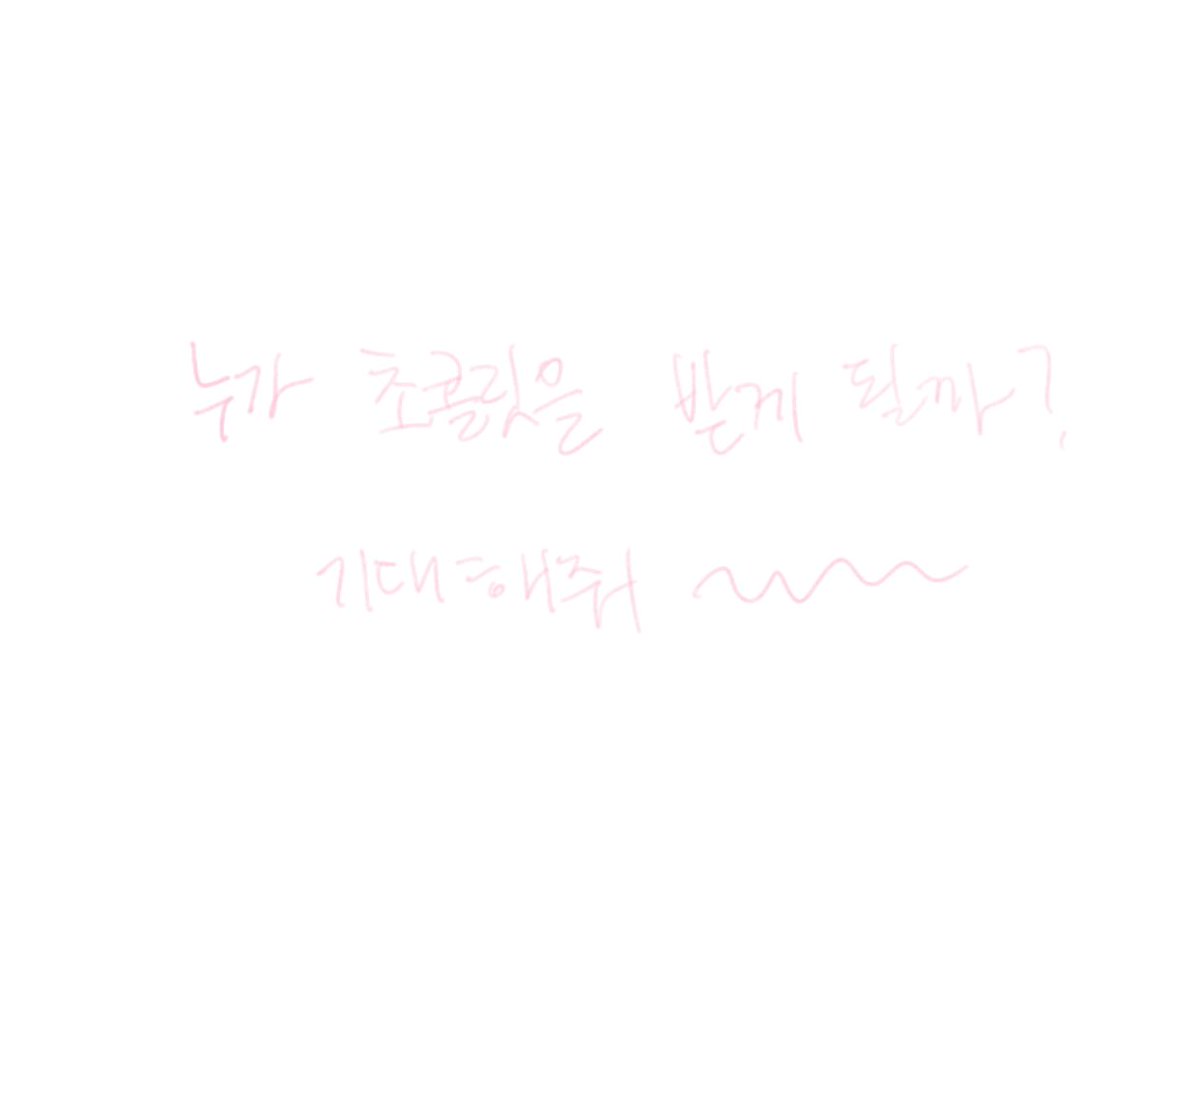 누가 초콜릿을 받게 될까?
기대해줘 ~~~